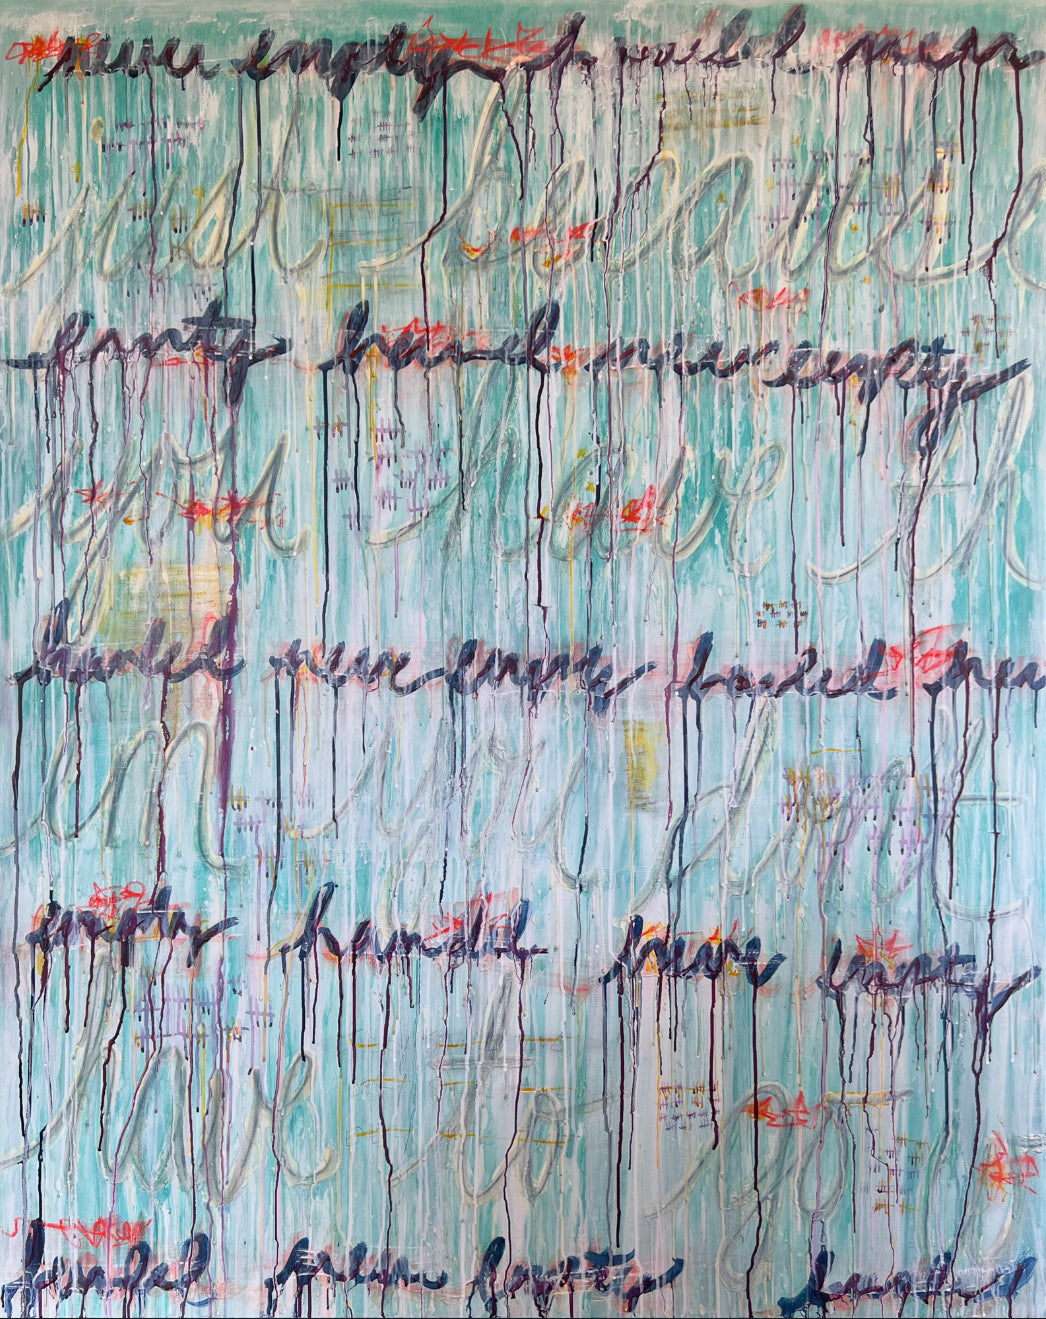 never empty handed never
just because
empty handed never empty
you have th
handed never empty handed never
em you dont
empty handed never empty
have to go
handed never empty handed